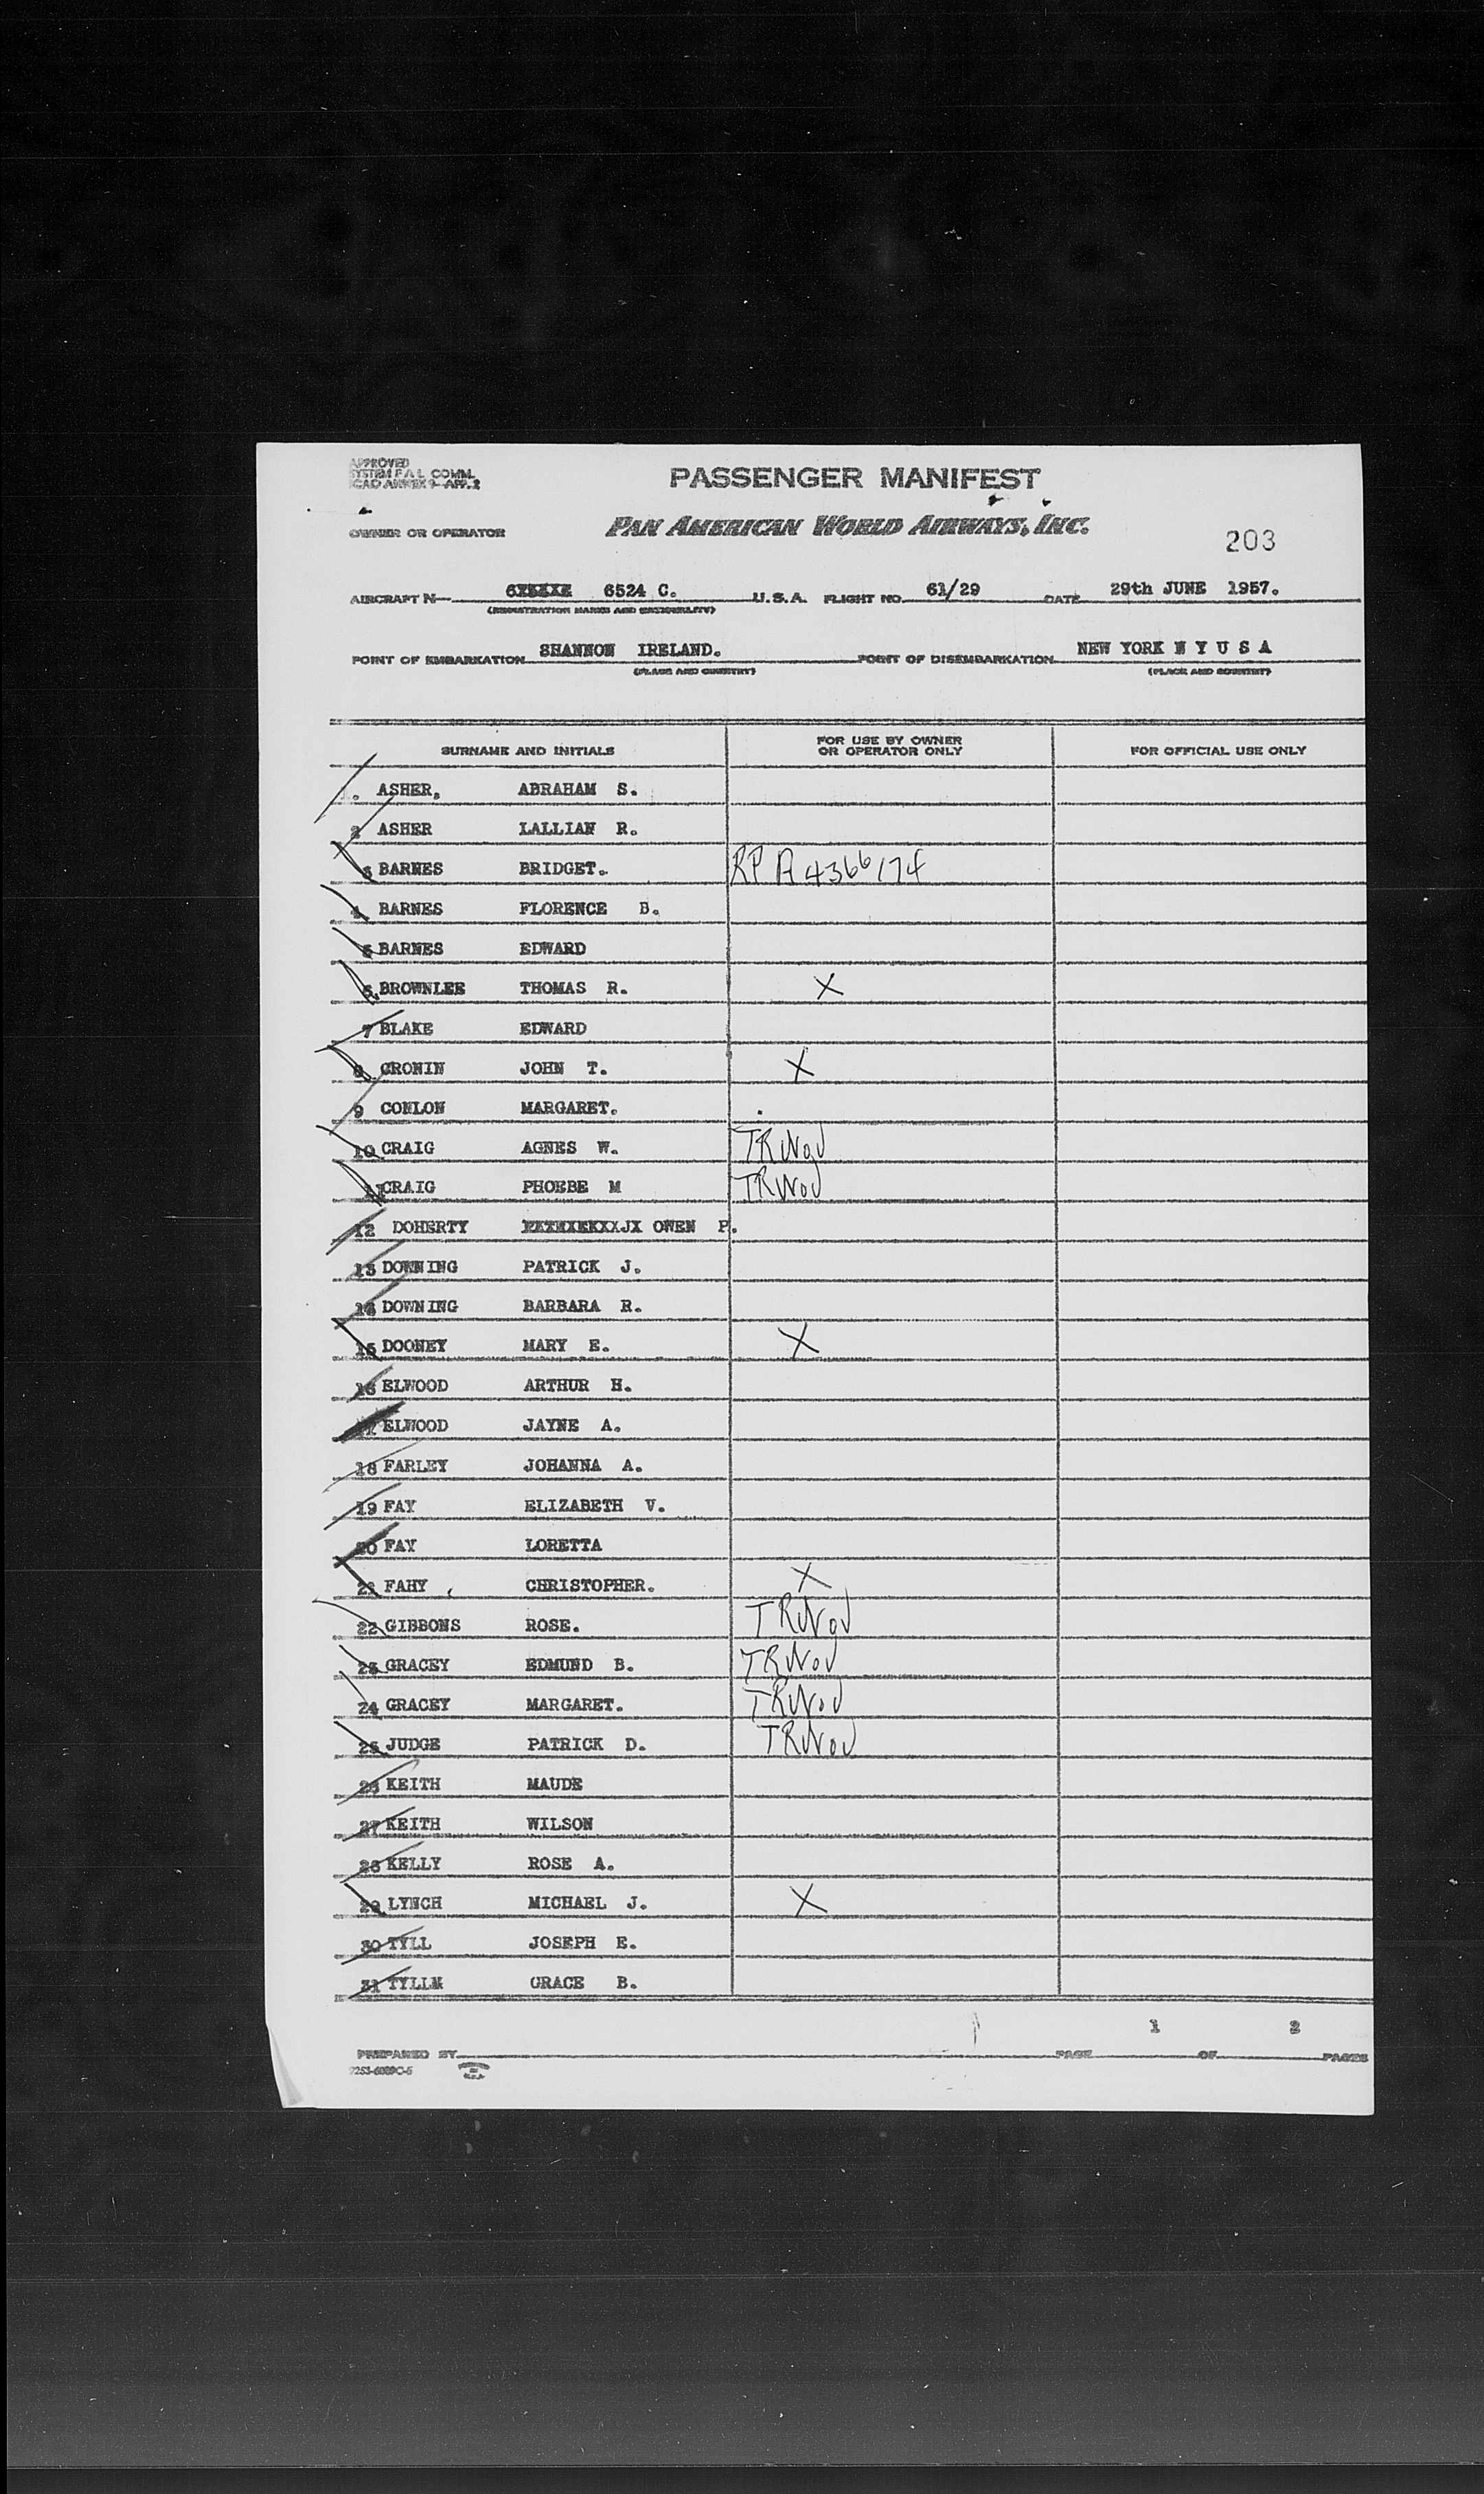 APPROVED
SYSTEM F.A.L. COMM.
ICAO ANNEX 9-APP. 2
PASSENGER MANIFEST
OWNER OR OPERATOR PAN AMERICAN WORLD AIRWAYS, INC.
203
AIRCRAFT N- 6524 C. U.S.A. FLIGHT NO. 61/29 DATE 29th JUNE 1957.
(REGISTRATION MARKS AND NATIONALITY)
POINT OF EMBARKATION SHANNON IRELAND. POINT OF DISEMBARKATION NEW YORK N Y U S A
(PLACE AND COUNTRY) (PLACE AND COUNTRY)
SURNAME AND INITIALS FOR USE BY OWNER OR OPERATOR ONLY FOR OFFICIAL USE ONLY
. ASHER, ABRAHAM S.
2 ASHER LALLIAN R.
3 BARNES BRIDGET. RP A4366174
4 BARNES FLORENCE B.
5 BARNES EDWARD
6. BROWNLEE THOMAS R. X
7 BLAKE EDWARD
8 CRONIN JOHN T. X
9 CONLON MARGARET.
10 CRAIG AGNES W. TRWov
11 CRAIG PHOEBE M TRWov
12 DOHERTY OWEN P.
13 DOWNING PATRICK J.
14 DOWNING BARBARA R.
15 DOONEY MARY E. X
16 ELWOOD ARTHUR H.
17 ELWOOD JAYNE A.
18 FARLEY JOHANNA A.
19 FAY ELIZABETH V.
20 FAY LORETTA
21 FAHY , CHRISTOPHER. X
22 GIBBONS ROSE. TRWov
23 GRACEY EDMUND B. TRWov
24 GRACEY MARGARET. TRWov
25 JUDGE PATRICK D. TRWov
26 KEITH MAUDE
27 KEITH WILSON
28 KELLY ROSE A.
29 LYNCH MICHAEL J. X
30 TYLL JOSEPH E.
31 TYLLM GRACE B.
PREPARED BY PAGE 1 OF 2 PAGES